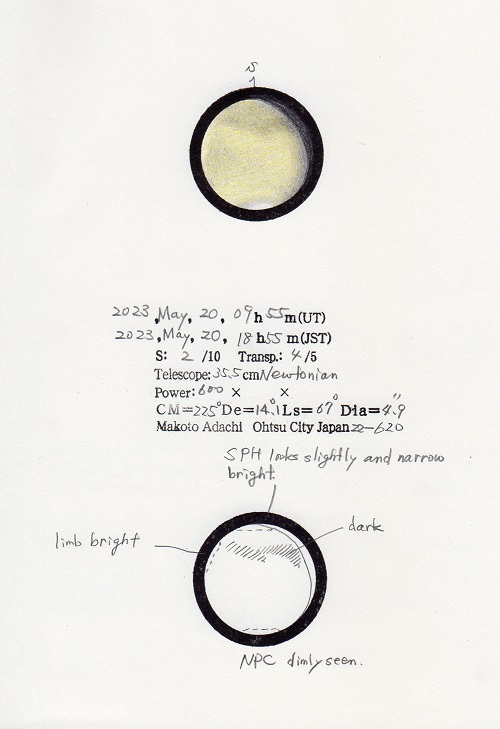 S
2023, May, 20, 09h55m(UT)
2023, May, 20, 18h55m(JST)
S: 2 /10 Transp.: 4/5
Telescope: 35.5cm Newtonian
Power: 600 × ×
CM=225° De=14.1° Ls=67° Dia=4.9"
Makoto Adachi Ohtsu City Japan 22-620
SPH looks slightly and narrow
bright.
limb bright
dark
NPC dimly seen.